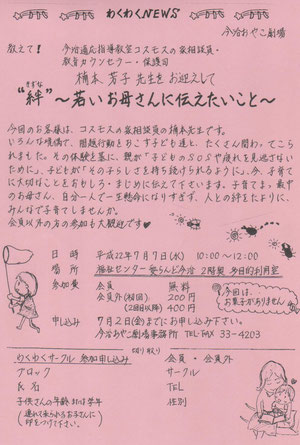 わくわくNEWS
今治おやこ劇場
教えて!
今治適応指導教室コスモスの家相談員・
教育カウンセラー・保護司
橋本 芳子 先生を お迎えして
きずな
“絆” ～若いお母さんに伝えたいこと～
今回のお客様は、コスモスの家相談員の橋本先生です。
いろんな環境で、問題行動をおこす子ども達と、たくさん関わってこら
れました。その体験を基に、親が「子どものSOSや疲れを見逃さない
ために」、子どもが「その子らしさを持ち続けられるように」、今、子育て
に大切なことをおもしろ・まじめに伝えて下さいます。子育てまっ最中
のお母さん、自分一人で一生懸命になりすぎず、人との絆をたよりに、
みんなで子育てしませんか。
会員以外の方の参加も大歓迎です♥
日 時 平成22年7月7日(水) 10:00～12:00
場 所 福祉センター愛らんど今治 2階奥 多目的利用室
参加費 会員 無料
会員外(初回) 200円
(2回目以降) 400円
今回は、お菓子がありません
申し込み 7月2日(金)までにお申し込み下さい。
今治おやこ劇場事務所 TEL・FAX 33-4203
切り取り
わくわくサークル 参加申し込み 会員・会員外
ブロック サークル
氏名 TEL
子供さんの年齢または学年 性別
(連れて来られるお子さんに
印をつけて下さい。)